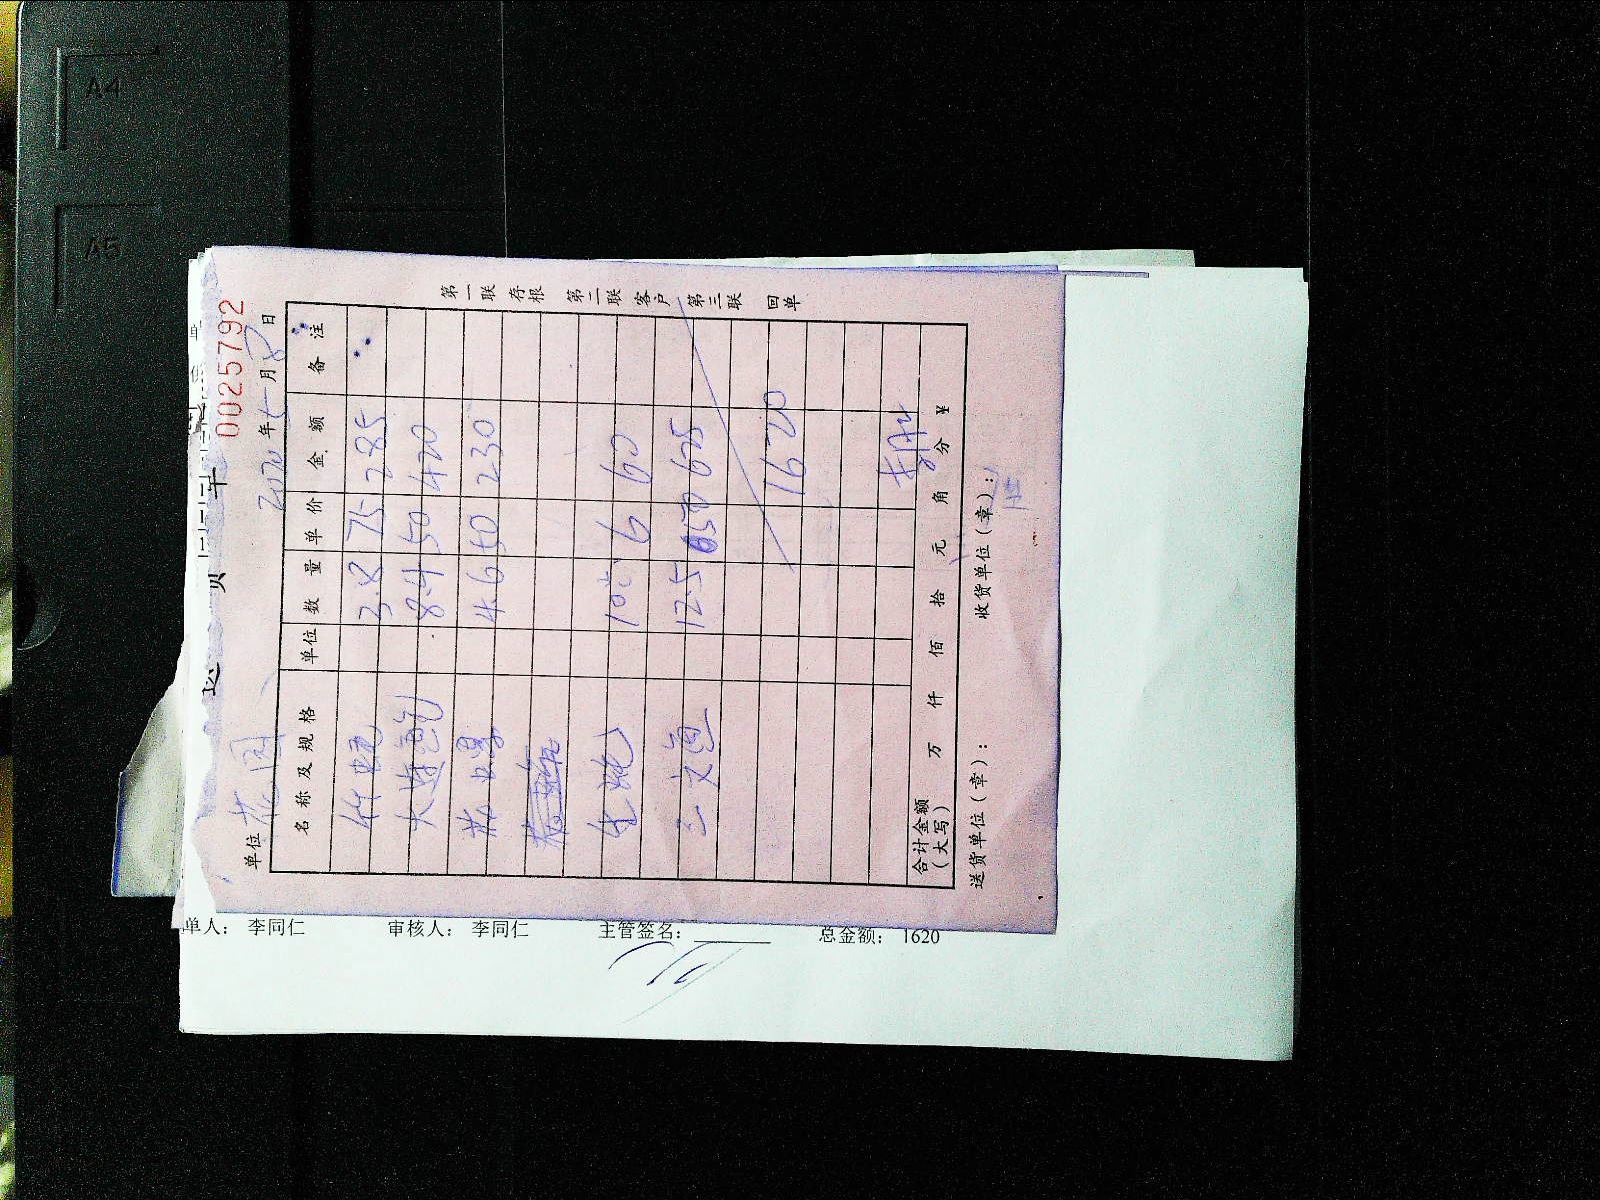 A4
A5
0025792
2020年 月 日
单位 花园
名称及规格 单位 数量 单价 金额 备注
竹蛏 3.8 75 285
大连鲍 8.4 50 420
花螺 4.6 50 230
生蚝 10 6 60
三文鱼 12.5 50 625
1620
合计金额
(大写) 万 仟 佰 拾 元 角 分 ¥
送货单位(章): 收货单位(章):
第一联 存根 第二联 客户 第三联 回单
单人: 李同仁 审核人: 李同仁 主管签名: 总金额: 1620